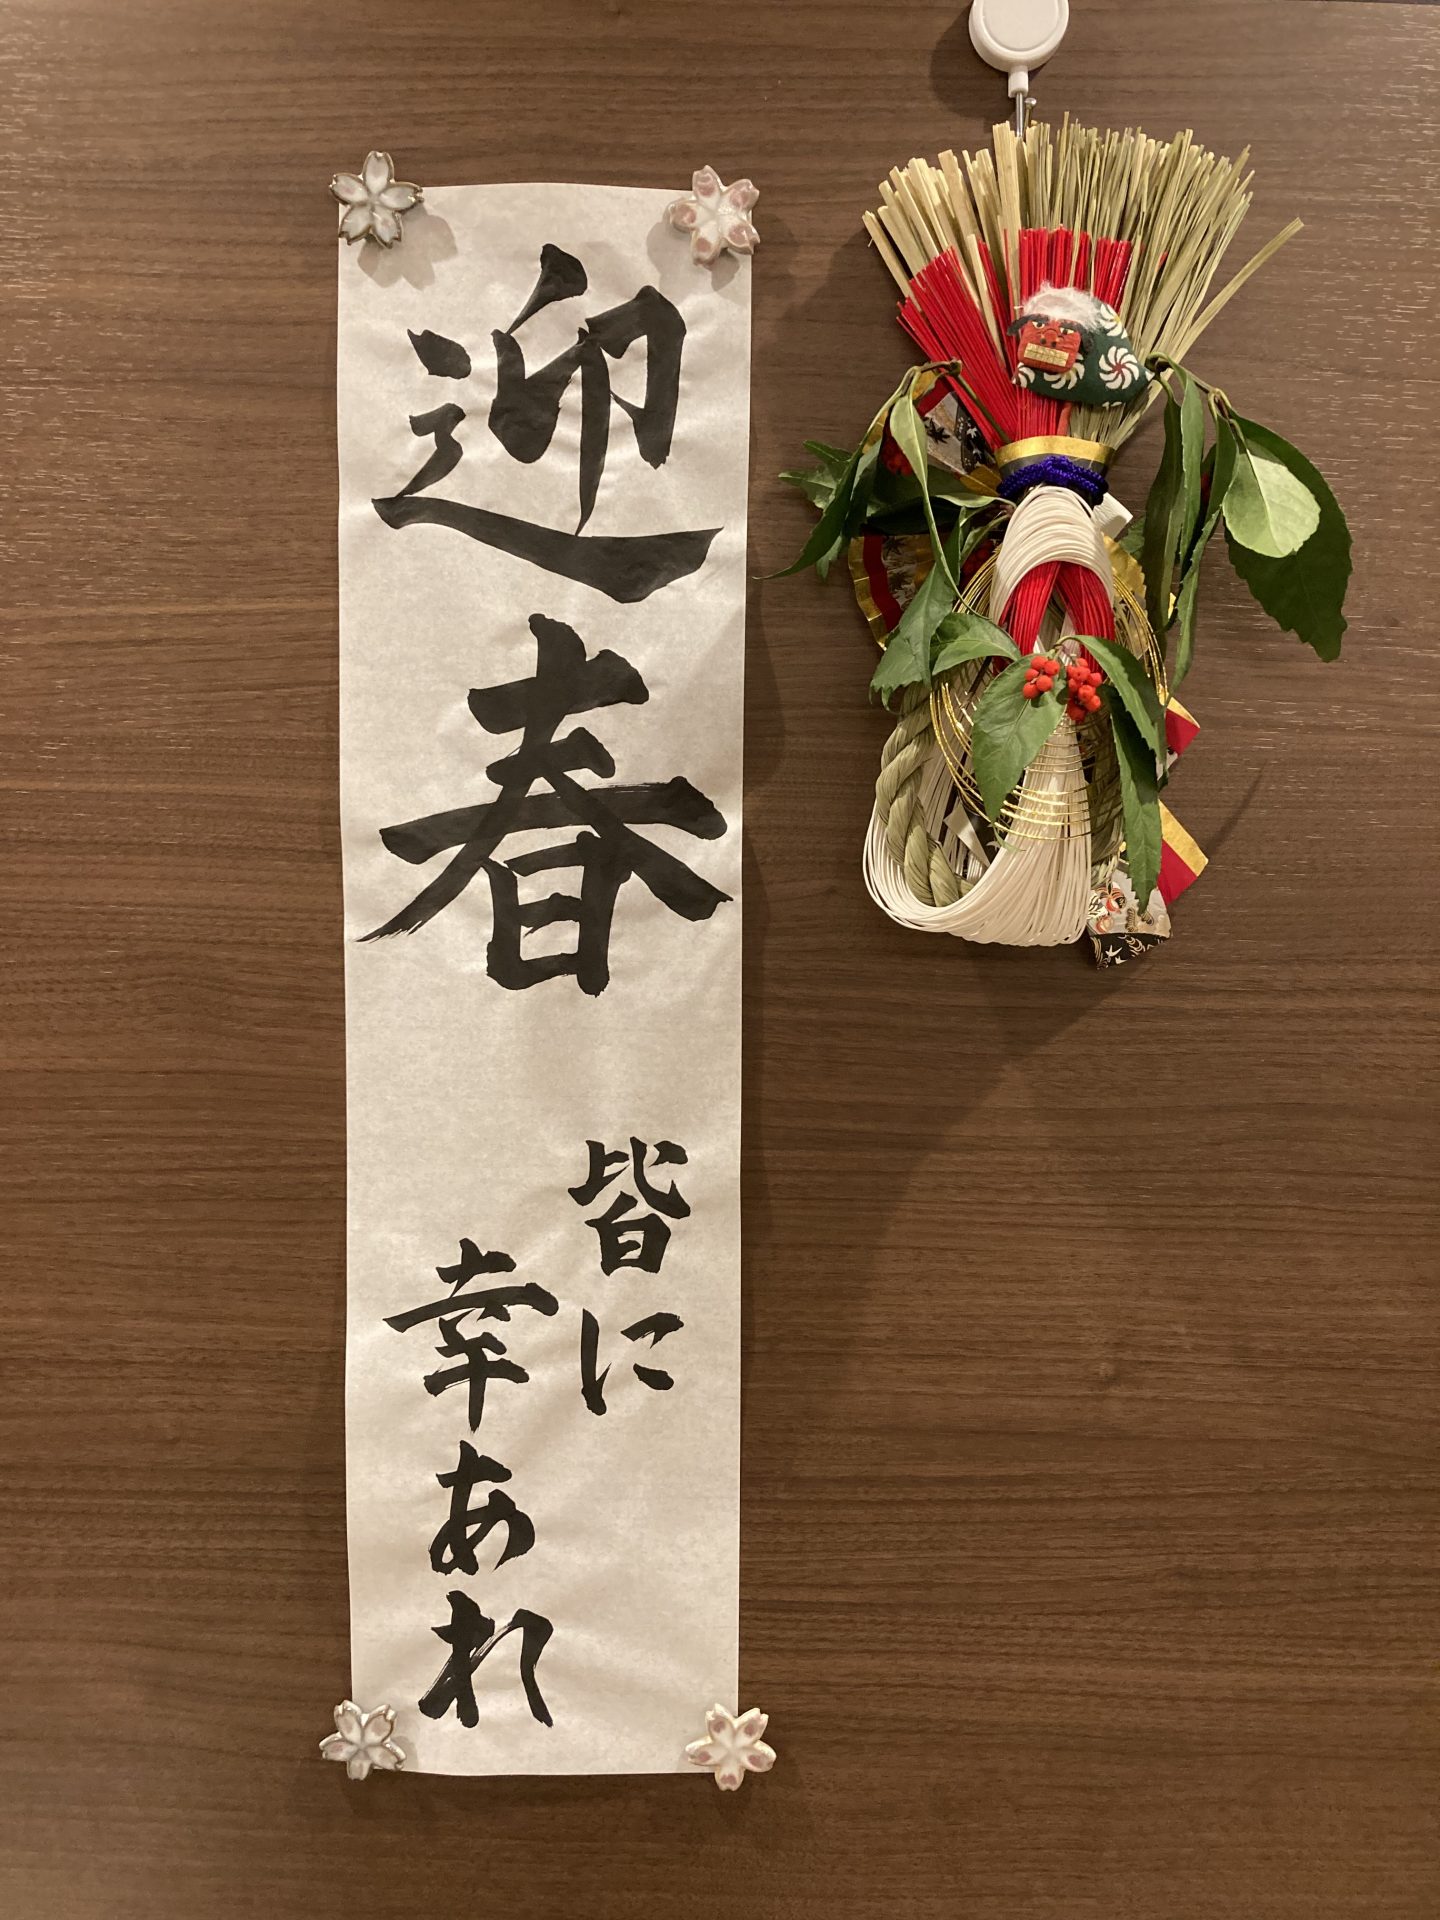 迎春
皆に
幸あれ